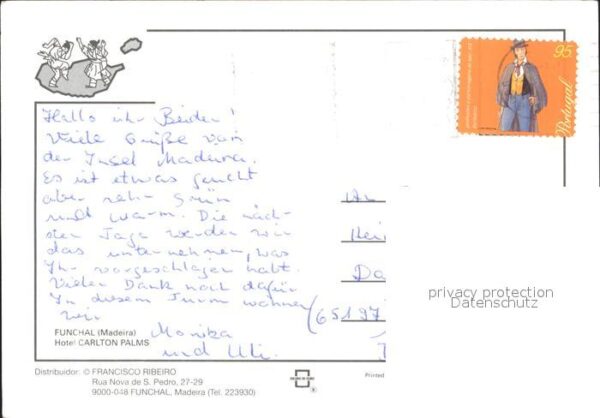 95.
Portugal
Hallo ihr Beiden!
Viele Grüße von
der Insel Madeira.
Es ist etwas feucht
aber sehr grün
und warm. Die näch-
sten Tage werden wir
das unternehmen, was
Ihr vorgeschlagen habt.
Vielen Dank noch dafür
In diesem Turm wohnen
wir
Monika
und Uli.
An
Da
(65197
privacy protection
Datenschutz
FUNCHAL (Madeira)
Hotel CARLTON PALMS
Distribuidor: © FRANCISCO RIBEIRO
Rua Nova de S. Pedro, 27-29
9000-048 FUNCHAL, Madeira (Tel. 223930)
Printed